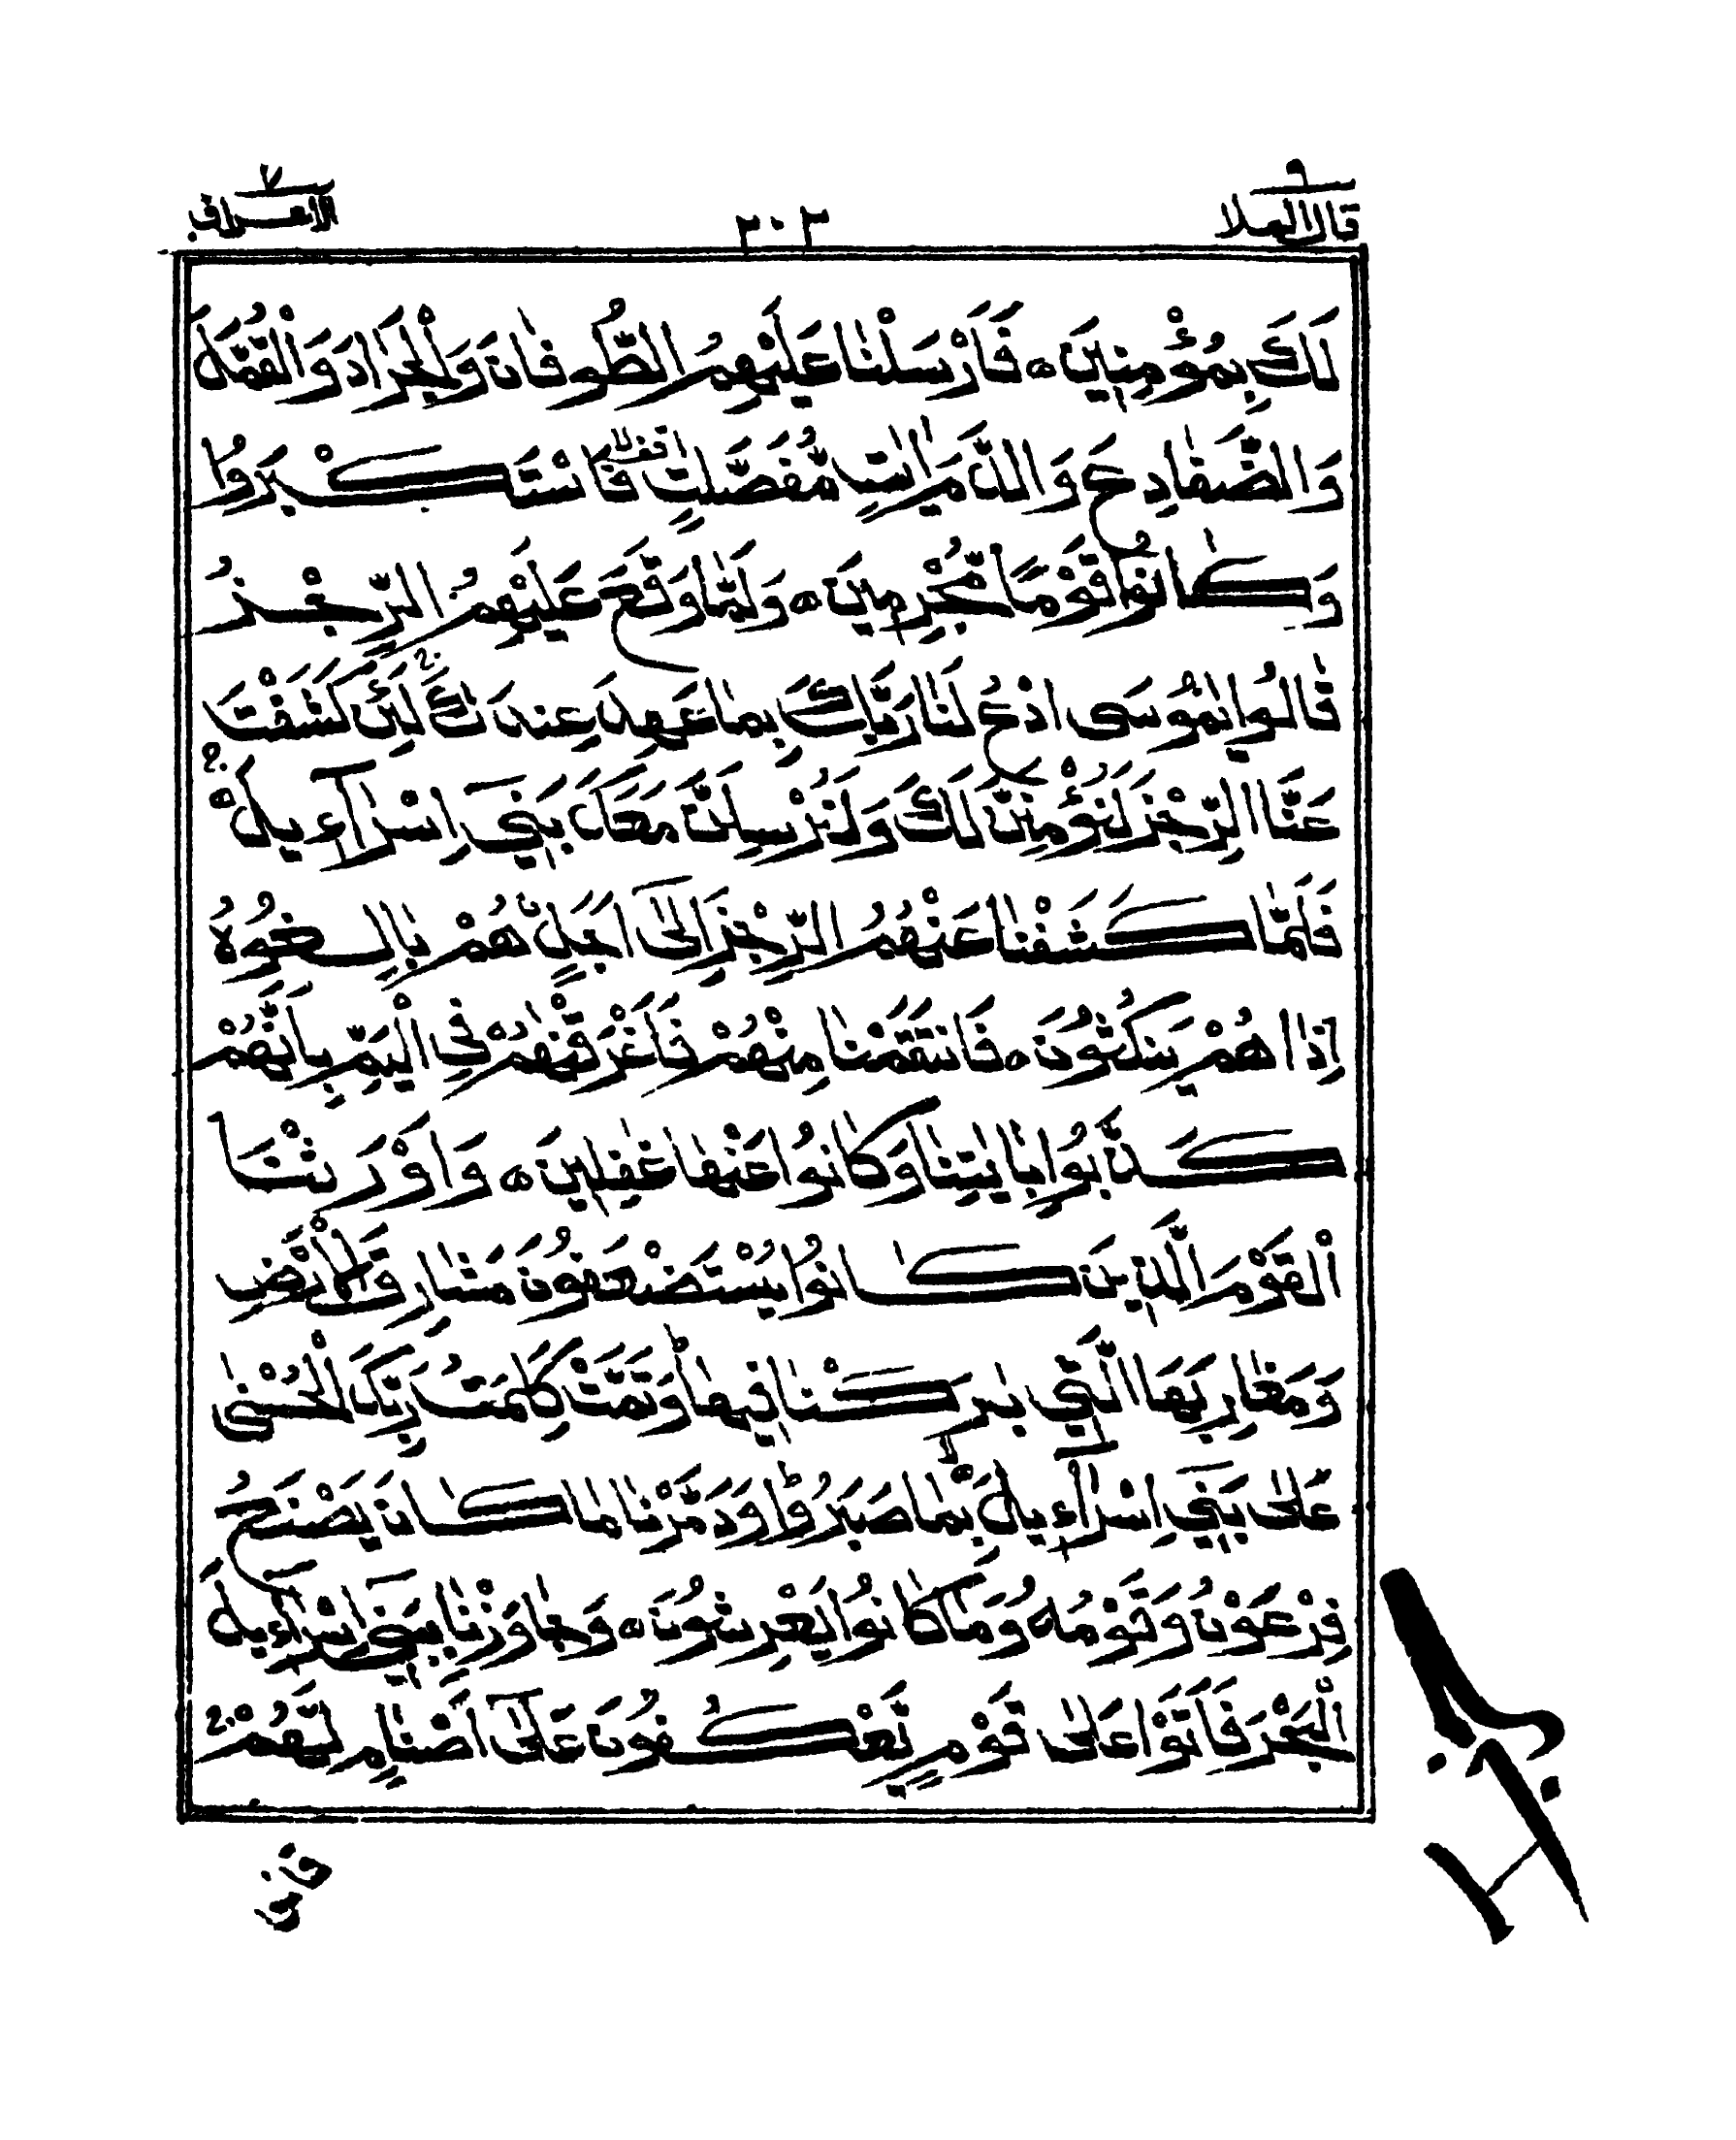 قال الملا ٩
٢٠٢
الاعراف ٧
لَكَ بِمُؤْمِنِيْنَ ۝ فَاَرْسَلْنَا عَلَيْهِمُ الطُّوفَانَ وَالْجَرَادَ وَالْقُمَّلَ
وَالضَّفَادِعَ وَالدَّمَ اٰيٰتٍ مُّفَصَّلٰتٍ فَاسْتَكْبَرُوا
وَكَانُوا قَوْمًا مُّجْرِمِيْنَ ۝ وَلَمَّا وَقَعَ عَلَيْهِمُ الرِّجْزُ
قَالُوا يٰمُوسَى ادْعُ لَنَا رَبَّكَ بِمَا عَهِدَ عِنْدَكَ لَئِنْ كَشَفْتَ
عَنَّا الرِّجْزَ لَنُؤْمِنَنَّ لَكَ وَلَنُرْسِلَنَّ مَعَكَ بَنِيٓ اِسْرَآءِيلَ ۝
فَلَمَّا كَشَفْنَا عَنْهُمُ الرِّجْزَ اِلٰٓى اَجَلٍ هُمْ بَالِغُوهُ
اِذَا هُمْ يَنْكُثُونَ ۝ فَانْتَقَمْنَا مِنْهُمْ فَاَغْرَقْنٰهُمْ فِي الْيَمِّ بِاَنَّهُمْ
كَذَّبُوا بِاٰيٰتِنَا وَكَانُوا عَنْهَا غٰفِلِيْنَ ۝ وَاَوْرَثْنَا
الْقَوْمَ الَّذِيْنَ كَانُوا يُسْتَضْعَفُونَ مَشَارِقَ الْاَرْضِ
وَمَغَارِبَهَا الَّتِي بٰرَكْنَا فِيهَا وَتَمَّتْ كَلِمَتُ رَبِّكَ الْحُسْنٰى
عَلٰى بَنِيٓ اِسْرَآءِيلَ بِمَا صَبَرُوا وَدَمَّرْنَا مَا كَانَ يَصْنَعُ
فِرْعَوْنُ وَقَوْمُهٗ وَمَا كَانُوا يَعْرِشُونَ ۝ وَجَاوَزْنَا بِبَنِيٓ اِسْرَآءِيلَ
الْبَحْرَ فَاَتَوْا عَلٰى قَوْمٍ يَّعْكُفُونَ عَلٰٓى اَصْنَامٍ لَّهُمْ